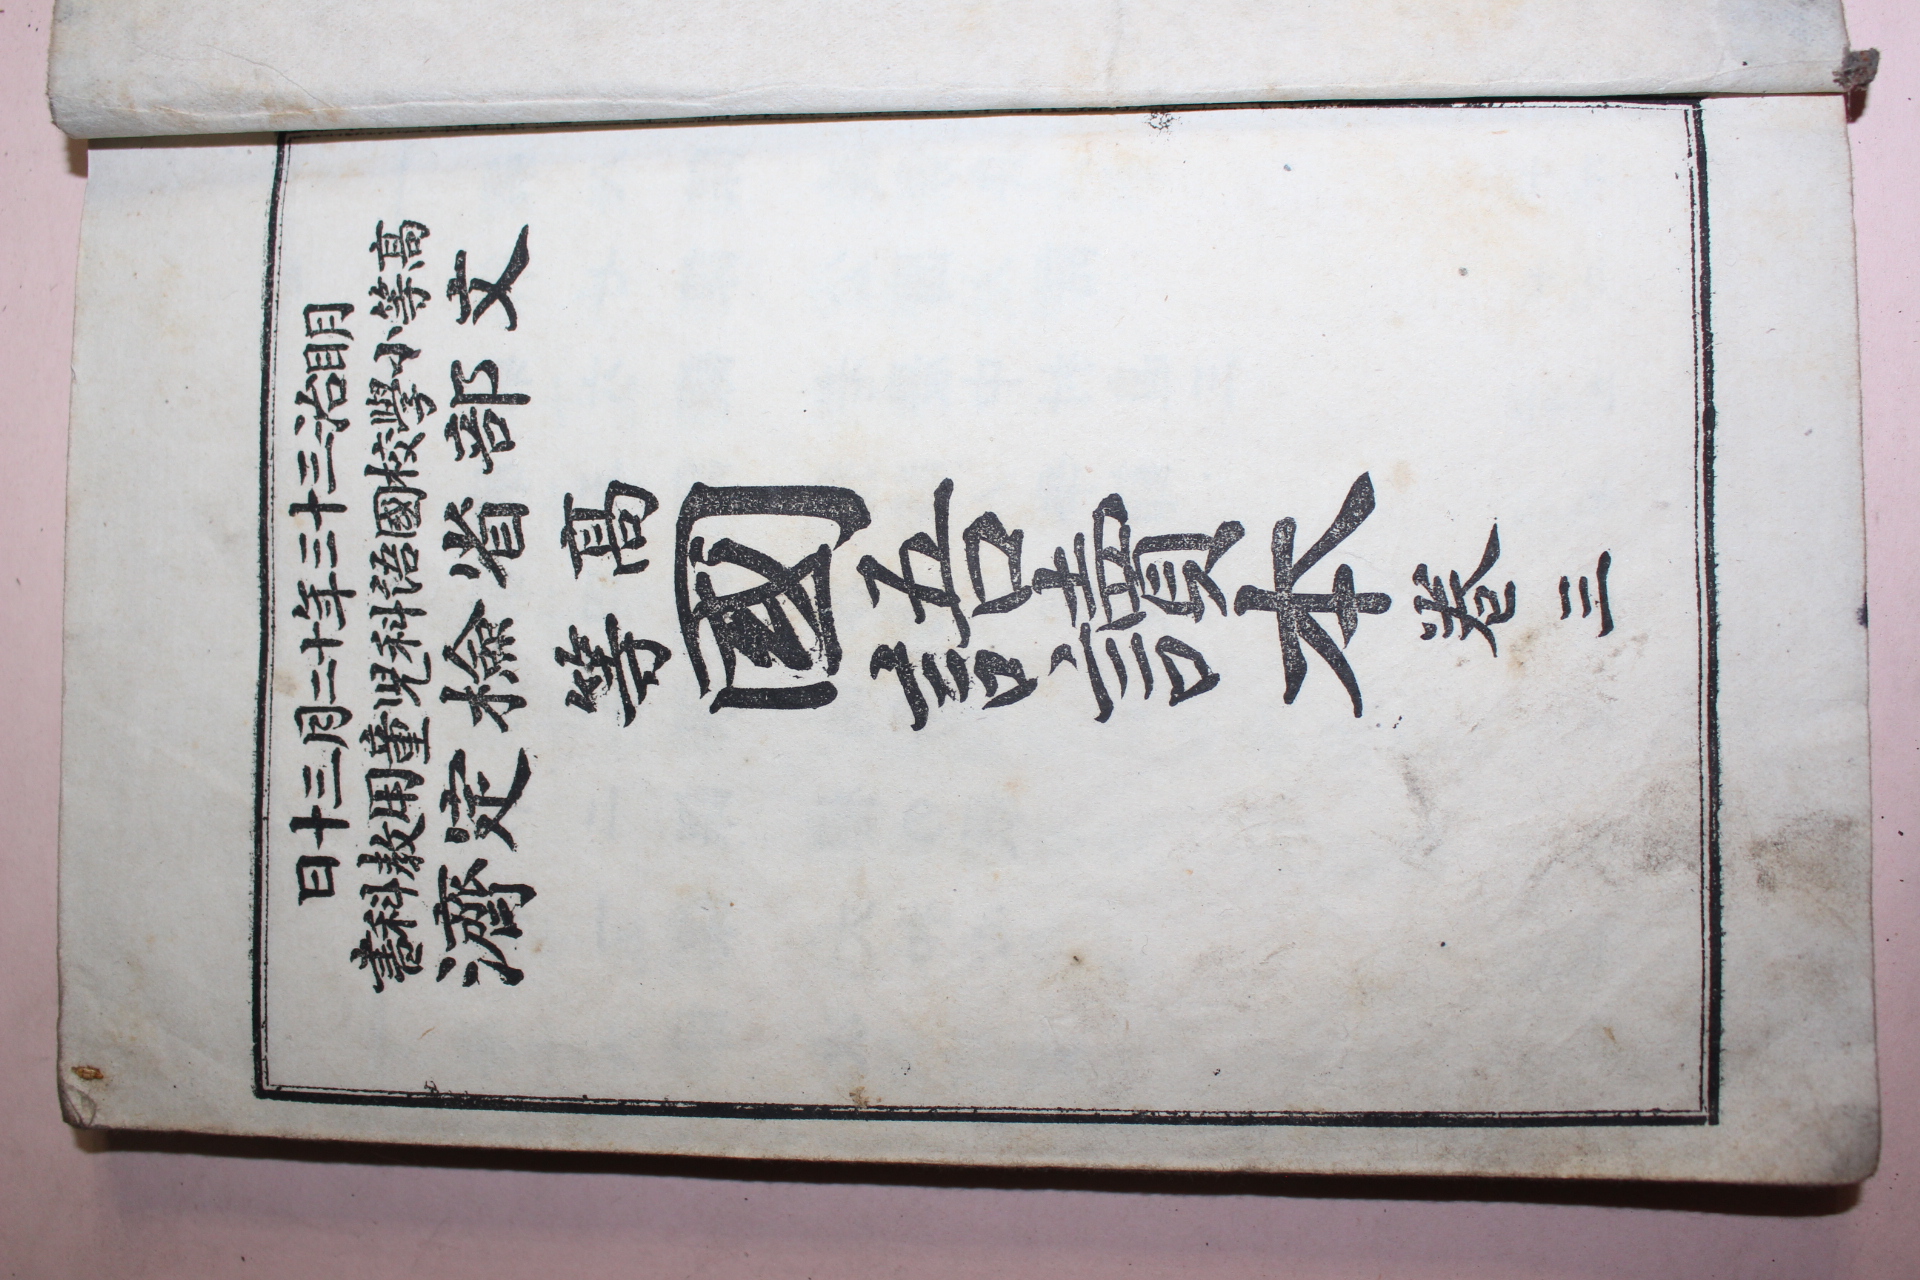 明治三十三年十二月三十日
高等小學校國語科児童用教科書
文部省檢定濟
高等
國語讀本
卷三